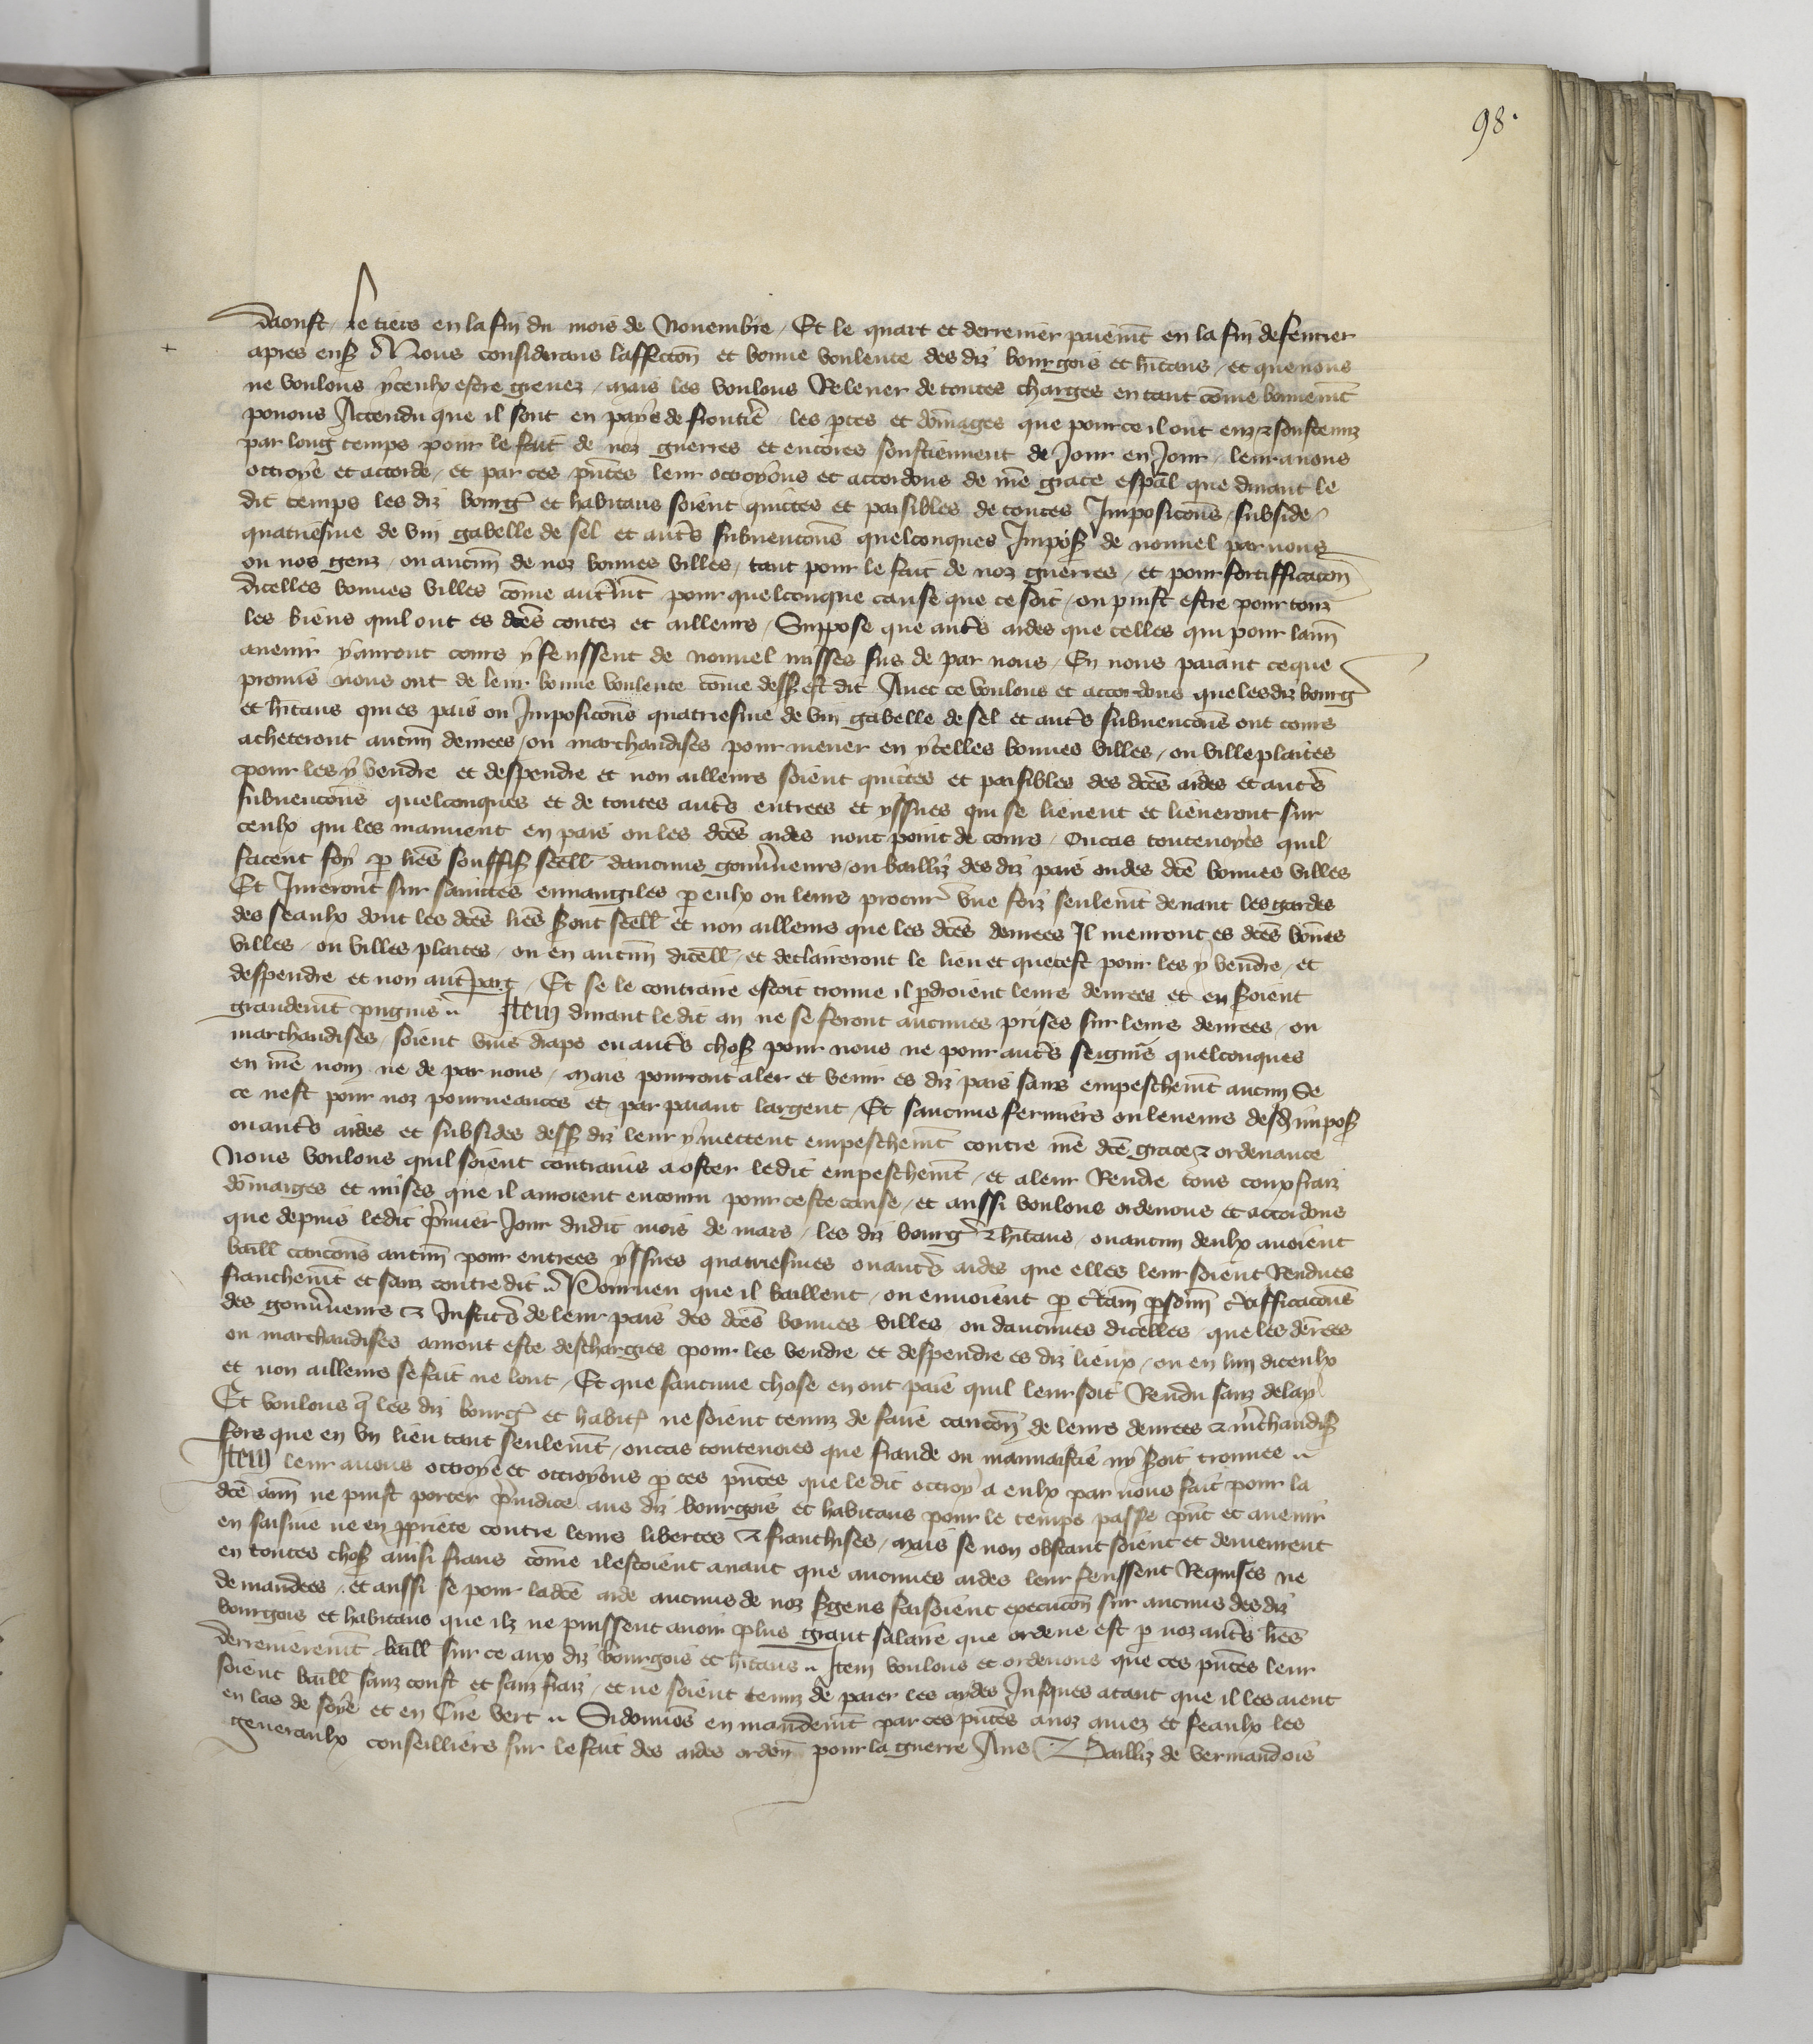 98.
daoust / le tiers en la fin du mois de Novembre / Et le quart et derrenier paiemt en la fin de fevrier
apres ens̃ Nous considerans laffecton et bonne voulente des diz bourgois et hitans / et que nous
ne voulons yceulx estre grevez / mais les voulons Relever de toutes charges en tant cõme bonnemt
povons Attendu que il sont en pays de frontiẽ les ptes et dõmages que pource il ont euz ⁊ soustenuz
par long temps pour le fait de noz guerres et encores soustiennent de Jour en Jour / leur avons
ottroye et accorde / et par ces pñtes leur ottroyons et accordons de nre grace espãl que durant le
dit temps les diz bourg̃ et habitans soient quittes et paisibles de toutes Impositions / subside /
quatriesme de vin gabelle de sel et autˢ subvencons quelconques Impos̃ de nouvel par nous
ou nos genz / ou aucuñ de noz bonnes villes / tant pour le fait de noz guerres / et pour fortifficacon
dicelles bonnes villes cõme autremt pour quelconque cause que ce soit / ou puist estre pour touz
les biens quil ont es dcẽs contez et ailleurs / Suppose que autˢ aides que celles qui pour lann
avenir y auront cours y feussent de nouvel misses sus de par nous / En nous paiant ceque
promis nous ont de leur bonne voulente cõme dess̃ est dit Avec ce voulons et accordons que les diz bourg
et hitans qui es pais ou Impositions quatriesme de vin gabelle de sel et autˢ subvencons ont cours
acheteront aucuñ denrees / ou marchandises pour mener en ycelles bonnes villes / ou ville plaites
pour les y vendre et despendre et non ailleurs soient quittes et paisibles des dcẽs aides et autˢ
subvencons quelconques et de toutes autˢ entrees et yssues qui se lievent et lieveront sur
ceulx qui les mainent en pais ou les dcẽs aides nont point de cours / Ou cas toutevoyes quil
facent foy p lres souffis̃ scell daucuns gouvneurs / ou bailliz des diz pais ou des dcẽ bonnes villes
Et Jureront sur saintes euvangiles p eulx ou leurs procur̃ une foiz seulemt devant les gardes
des seaulx dont les dcẽs lres s̃ont scell et non ailleurs que les dcẽs denrees Il menront es dcẽs bonnes
villes / ou villes plaites / ou en aucuñ dicell / et declaireront le lieu et que cest pour les y vendre / et
despendre et non aut̃part / Et se le contraire estoit trouve il pdroient leurs denrees et en s̃oient
grandemt pugnis ~ Item durant le dit an ne se feront aucunes prises sur leurs denrees / ou
marchandises / soient vins draps ou autˢ chos̃ pour nous ne pour autˢ seigñrs quelconques
en nre nom ne de par nous / mais pourront aler et venir es diz pais sans empeschemt aucun Se
ce nest pour noz pourveances et par paiant largent / Et saucuns fermiers ou leveurs desd impos̃
ou autˢ aides et subsides dess̃ diz leur y mettent empeschemt contre nre dcẽ grace ⁊ ordenance
Nous voulons quil soient contrains a oster ledit empeschemt / et a leur Rendre tous coux fraiz
dõmaiges et mises que il auroient encouru pour ceste cause / et aussi voulons ordenons et accordons
que depuis ledit pmier Jour dudit mois de mars / les diz bourg̃ ⁊ hitans / ou aucun deulx avoient
baill caucons aucuñ pour entrees yssues quatriesmes ou autˢ aides que elles leur soient Rendues
franchemt et sanz contredit ~ Pourveu que il baillent / ou envoient p ctain psonñ ctifficacons
des gouvneurs ⁊ Justicˢ de leur pais des dcẽs bonnes villes ou daucunes dicelles que les denrees
ou marchandises auront este deschargies pour les vendre et despendre es diz lieux / ou en lun diceulx
et non ailleurs se fait ne lont / Et que saucune chose en ont paie quil leur soit Rendu sanz delay
Et voulons q̃ les diz bourg̃ et habit̃ ne soient tenuz de faire caucon de leurs denrees ⁊ mrchandis̃
fors que en un lieu tant seulemt / ou cas toutevoies que fraude ou mauvaistie ny s̃oit trouvee ~
Item leur avons ottroye et ottroyons p ces pñtes que le dit ottroy a eulx par nous fait pour la
dcẽ ann ne puist porter pjudice aus diz bourgois et habitans pour le temps passe pñt et avenir
en saisine ne en ppriete contre leurs libertes ⁊ franchises / mais se non obstant soient et demeurent
en toutes chos̃ ainsi frans cõme il estoient avant que aucunes aides leur feussent Requises ne
demandees / et aussi se pour la dcẽ aide aucuns de noz s̃gens faisoient execucon sur aucuns des diz
bourgois et habitans que ilz ne puissent avoir plus grant salaire que ordene est p noz autˢ lres
derrenieremt baill sur ce aux diz bourgois et hitans ~ Item voulons et ordenons que ces pñtes leur
soient baill sanz coust et sanz fraiz / et ne soient tenuz de paier les aydes Jusques atant que il les aient
en las de soye et en Cire vert ~ Si donnons en mandemt par ces pñtes a noz amez et feaulx les
generaulx conseilliers sur le fait des aides orden pour la guerre Aus Bailliz de vermandois